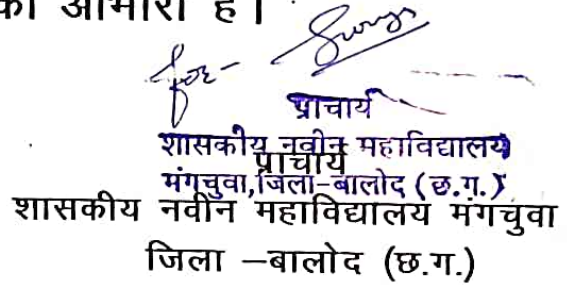 की आभारी है।
for-
प्राचार्य
शासकीय नवीन महाविद्यालय
मंगचुवा,जिला-बालोद (छ.ग.)
प्राचार्य
शासकीय नवीन महाविद्यालय मंगचुवा
जिला –बालोद (छ.ग.)